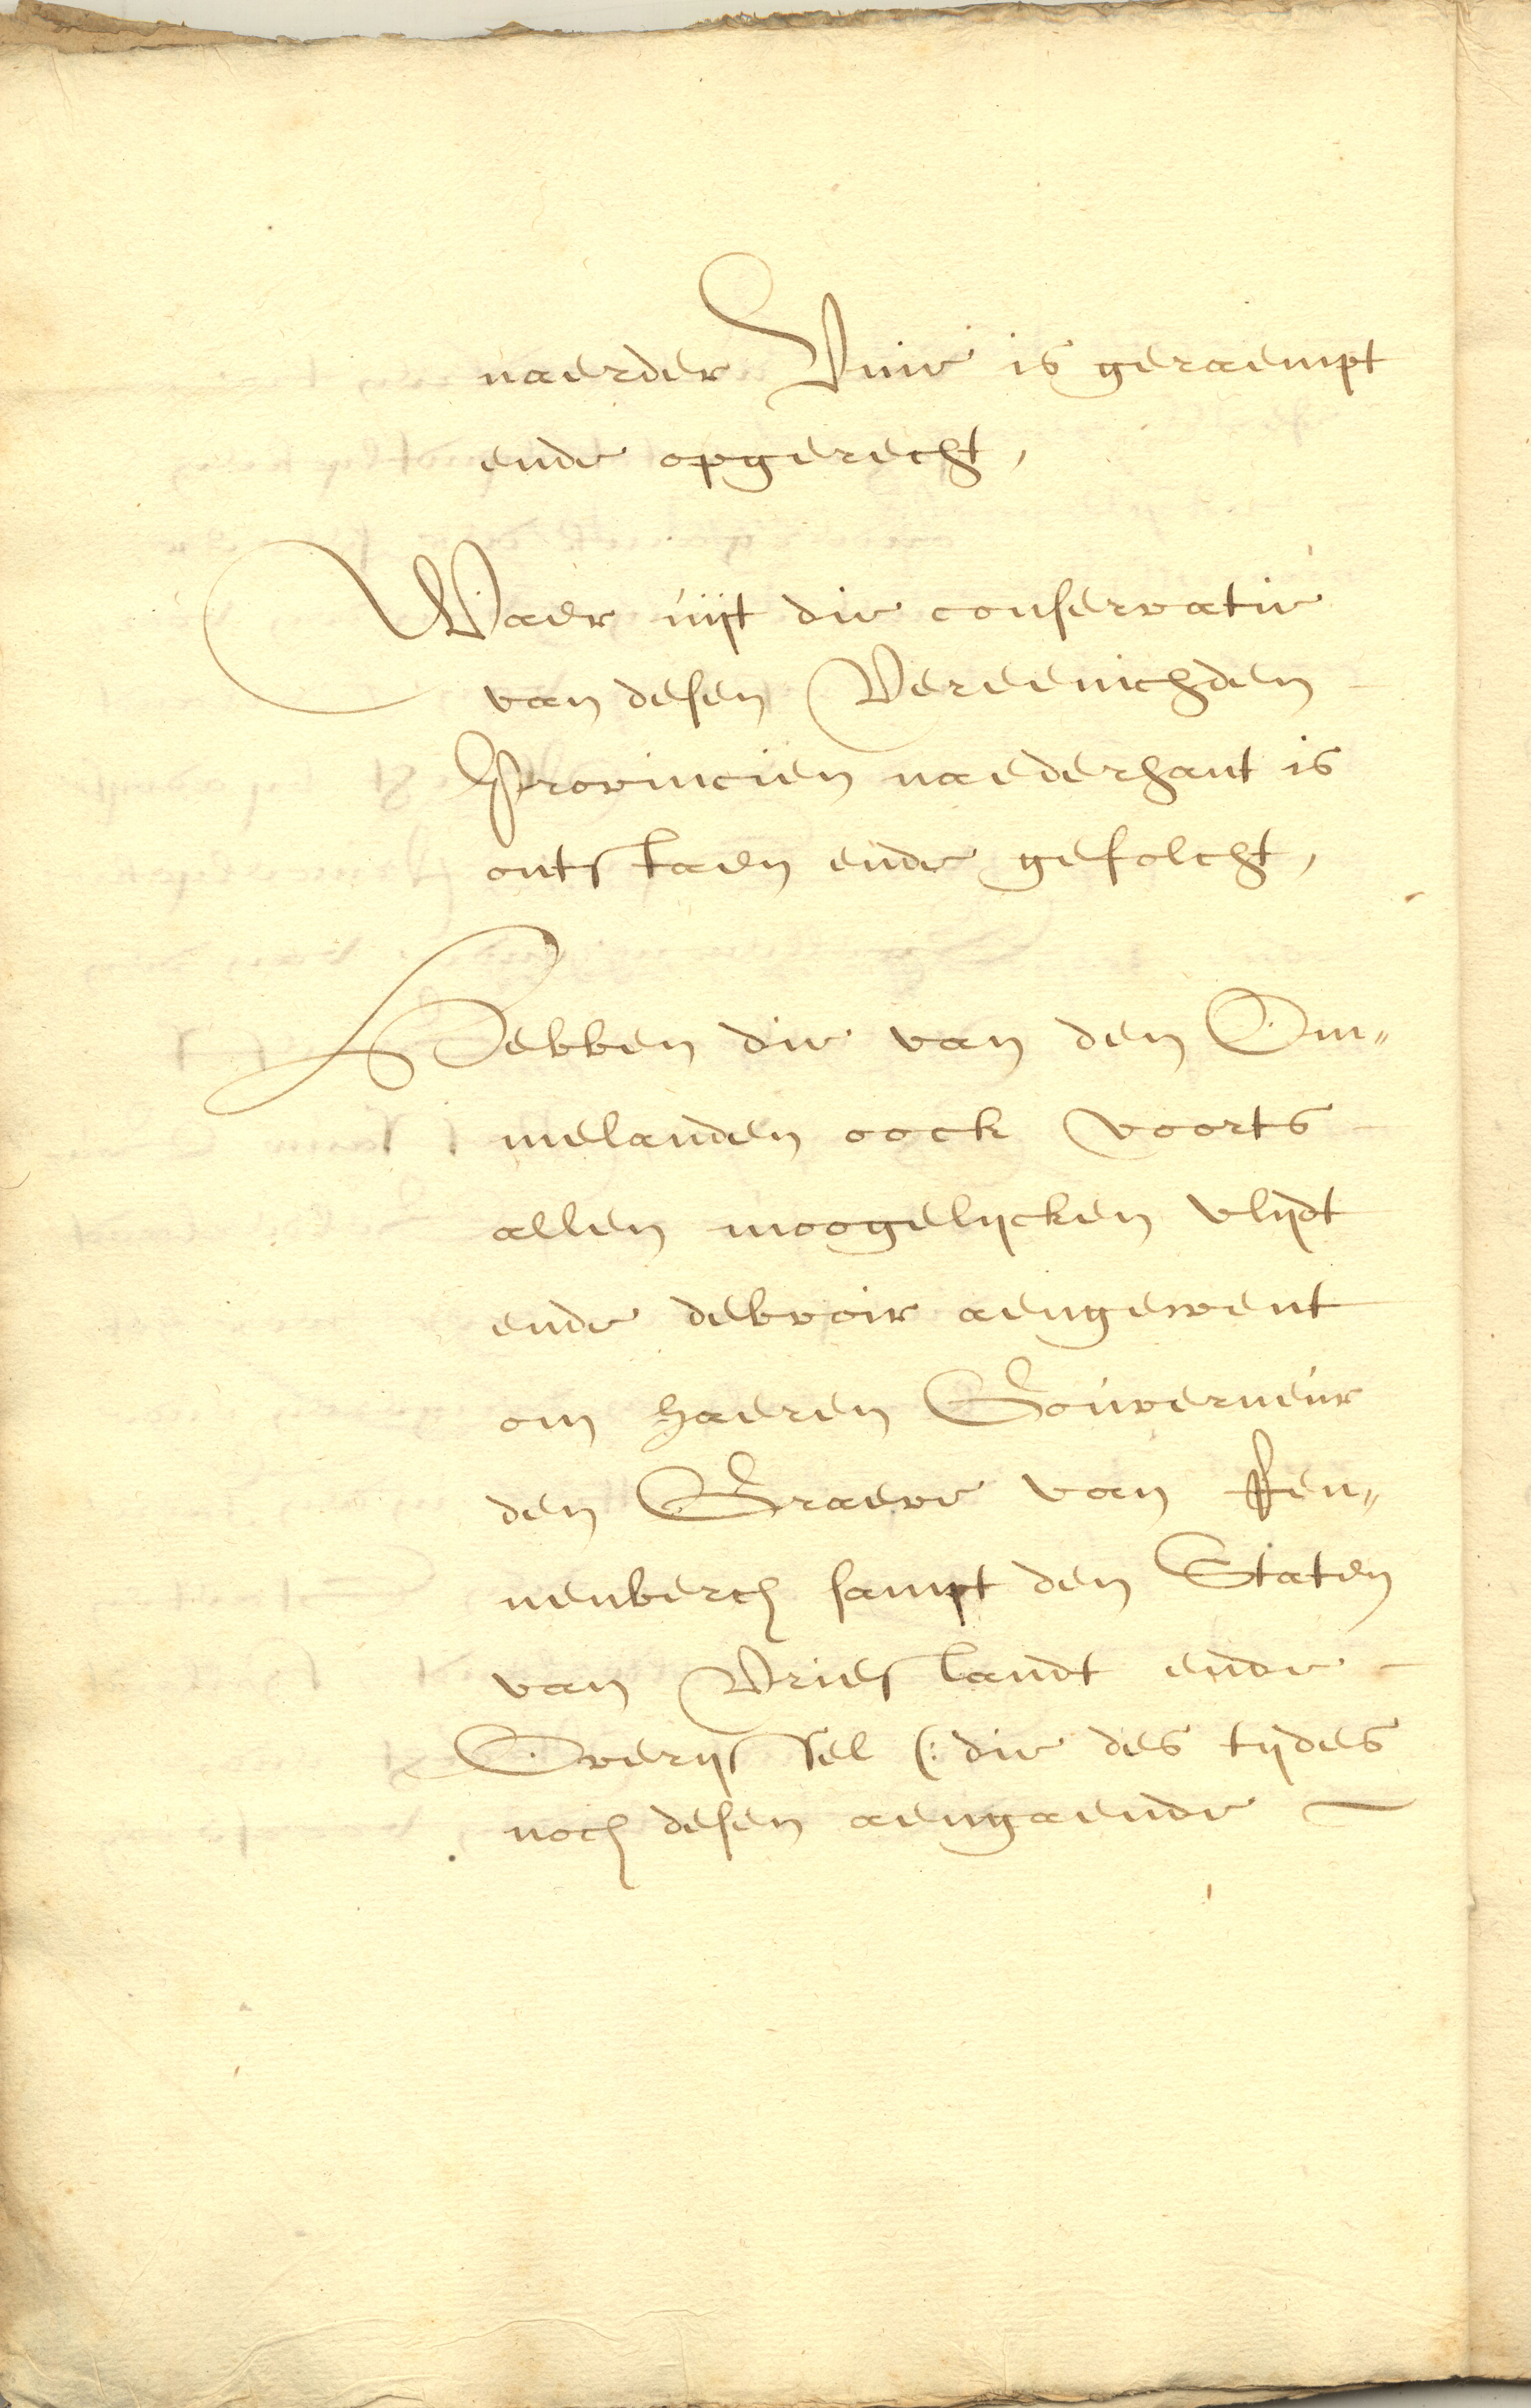 naerder Unie is geraempt
ende opgerecht,
Waer uijt die conservatie
van desen Vereenichden
Provincien naederhant is
ontstaen ende gefolcht,
Hebben die van den Om„
melanden oock voorts
allen moogelijcken vlijdt
ende debvoir aengewent
om haeren Gouverneur
den Graeve van Ren„
nenberch sampt den Staten
van Vrieslandt ende
Overijssel (: die des tijdes
noch desen aengaende